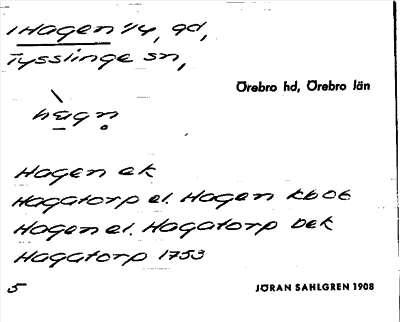 1 Hagen 1/4, gd,
Tysslinge sn,
Örebro hd, Örebro län
hàgn
Hagen ek
Hagatorp el. Hagen kb 06
Hagen el. Hagatorp bek
Hagatorp 1753
5
JÖRAN SAHLGREN 1908